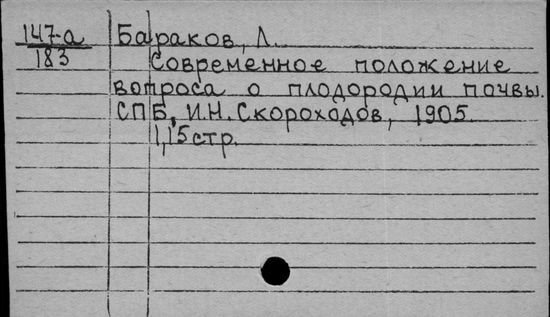 147-а Бараков, Л.
183 Современное положение
вопроса о плодородии почвы.
СПБ, И.Н. Скороходов, 1905
1,15 стр.